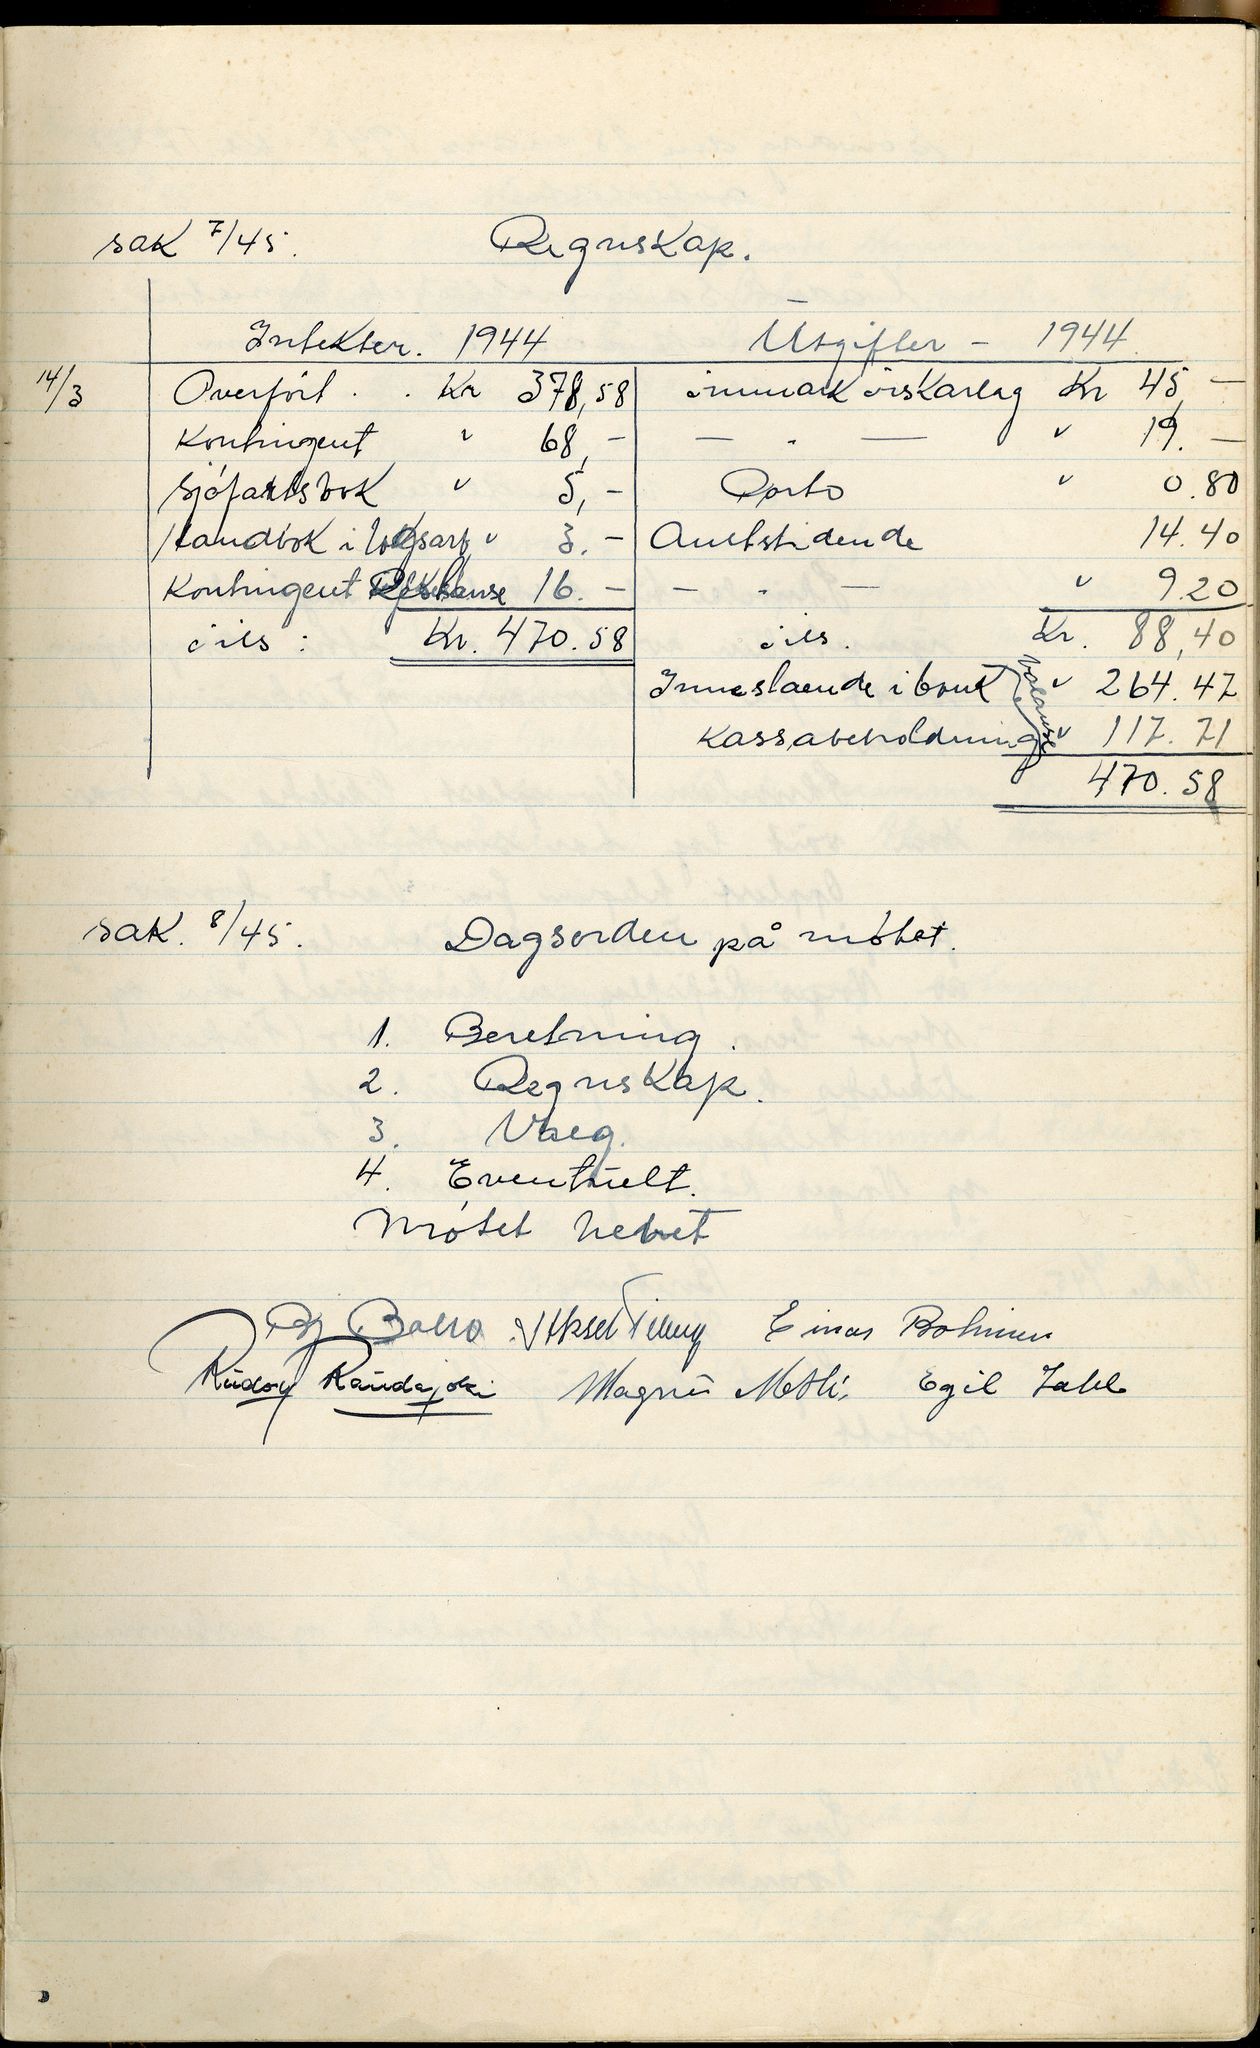 sak 7/45. Regnskap.
Intekter. 1944
Utgifter - 1944
14/3 Overført . . Kr 378,58
Kontingent " 68,-
Sjøfartsbok " 5,-
Handbok i " 3.-
Kontingent 16.-
ils: Kr. 470.58
Kr 45,-
— " — " 19.-
Porto " 0.80
14.40
— " — " 9.20
ils. Kr. 88,40
Innestaende i bank " 264.47
Kassabeholdning " 117.71
balanse
470.58
sak. 8/45. Dagsorden på møtet.
1. Beretning.
2. Regnskap.
3. Valg.
4. Eventuelt.
Møtet hevet
Einar
Magnus Egil